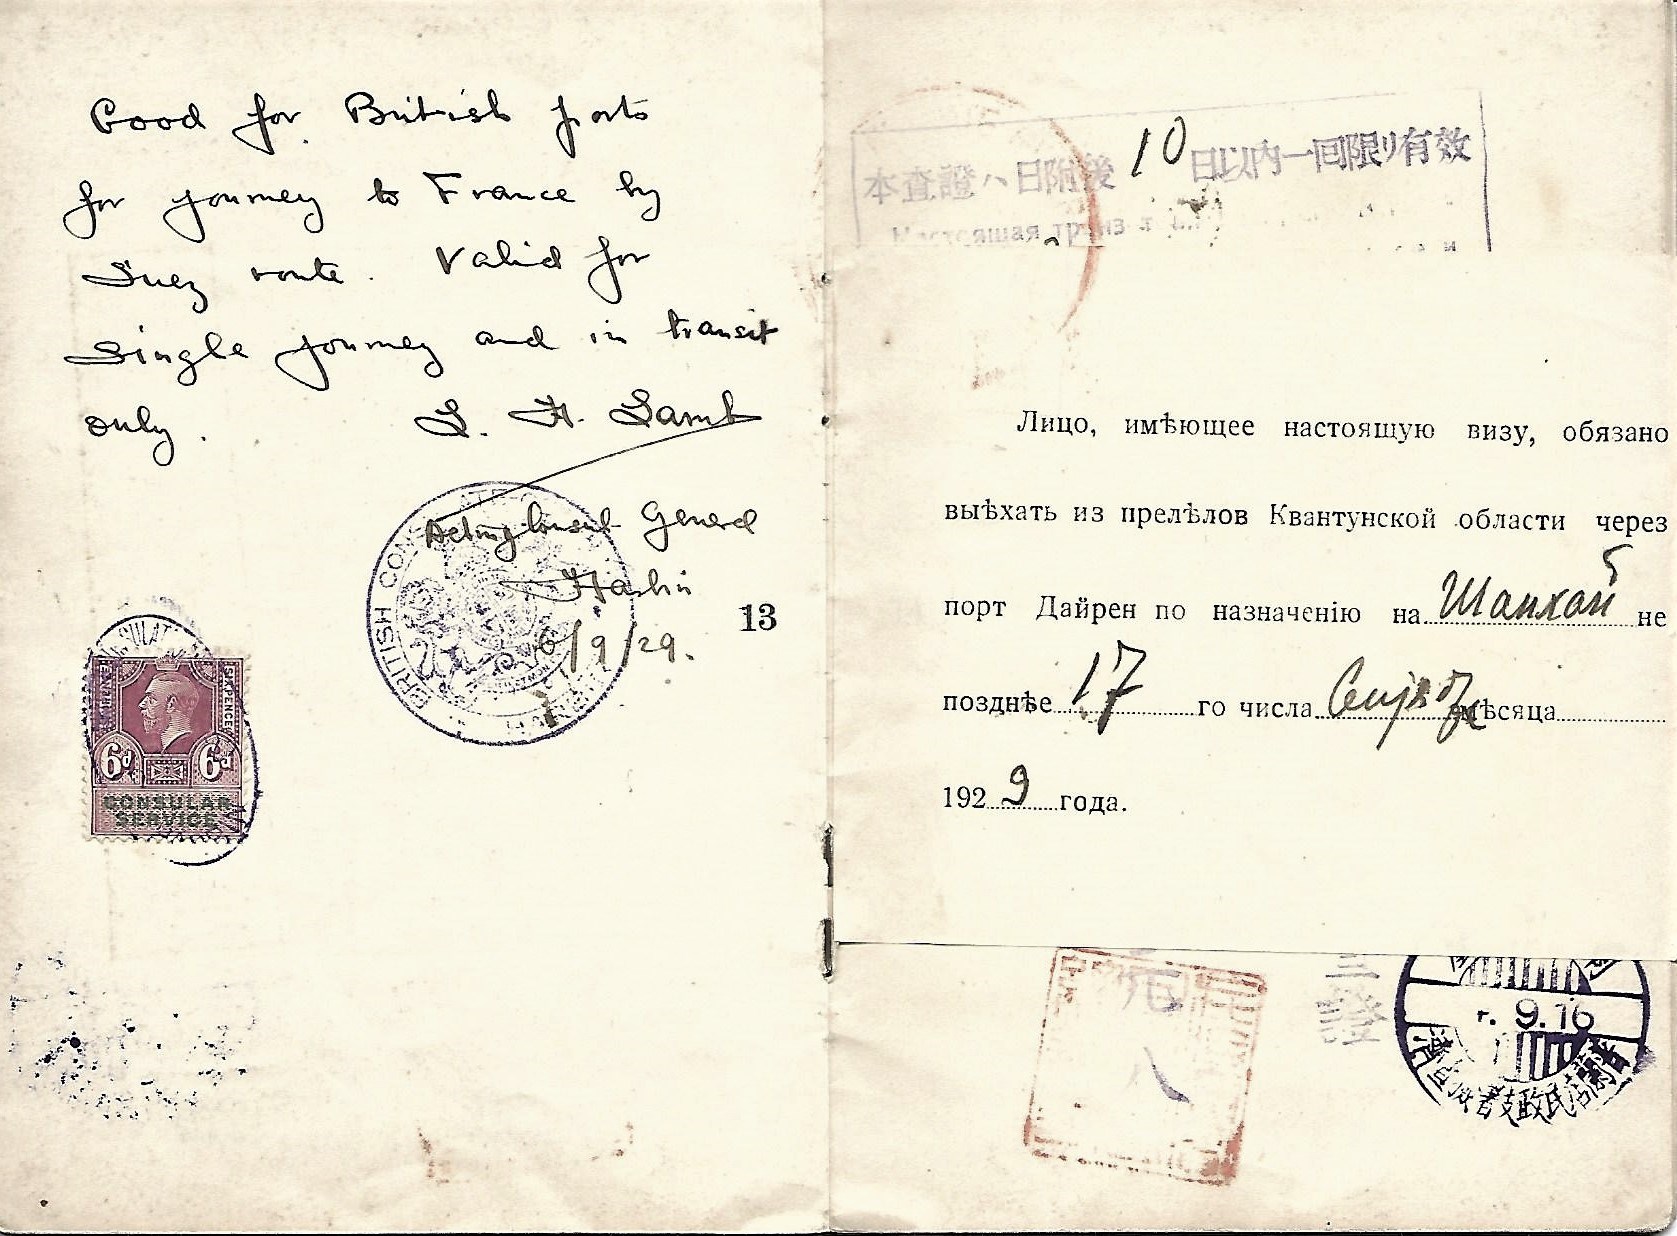 Good for British ports
for journey to France by
Suez route. Valid for
single journey and in transit
only.
Acting Consul General
Harbin
6/9/29.
BRITISH
13
SIXPENCE
6d 6d
CONSULAR
SERVICE
本査證ハ日附後10日以内一回限リ有効
Настоящая
Лицо, имѣющее настоящую визу, обязано
выѣхать из прелѣлов Квантунской области через
порт Дайрен по назначенію на Шанхай не
позднѣе 17 го числа мѣсяца
1929 года.
9.16